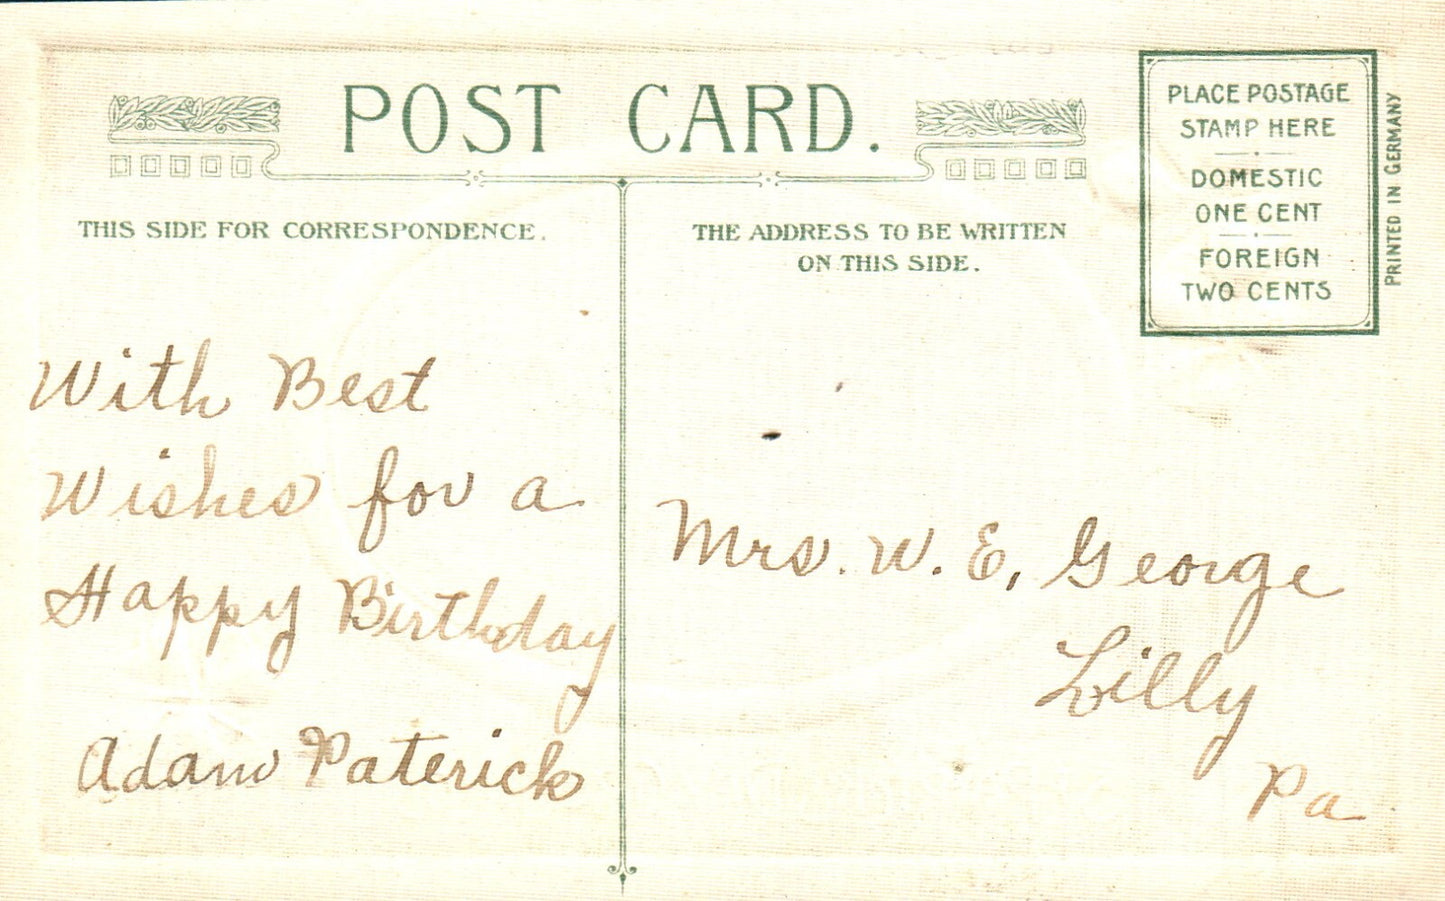 POST CARD.
THIS SIDE FOR CORRESPONDENCE.
THE ADDRESS TO BE WRITTEN
ON THIS SIDE.
PLACE POSTAGE
STAMP HERE
DOMESTIC
ONE CENT
FOREIGN
TWO CENTS
PRINTED IN GERMANY
With Best
Wishes for a
Happy Birthday
Adam Paterick
Mrs. W. E. George
Lilly
Pa